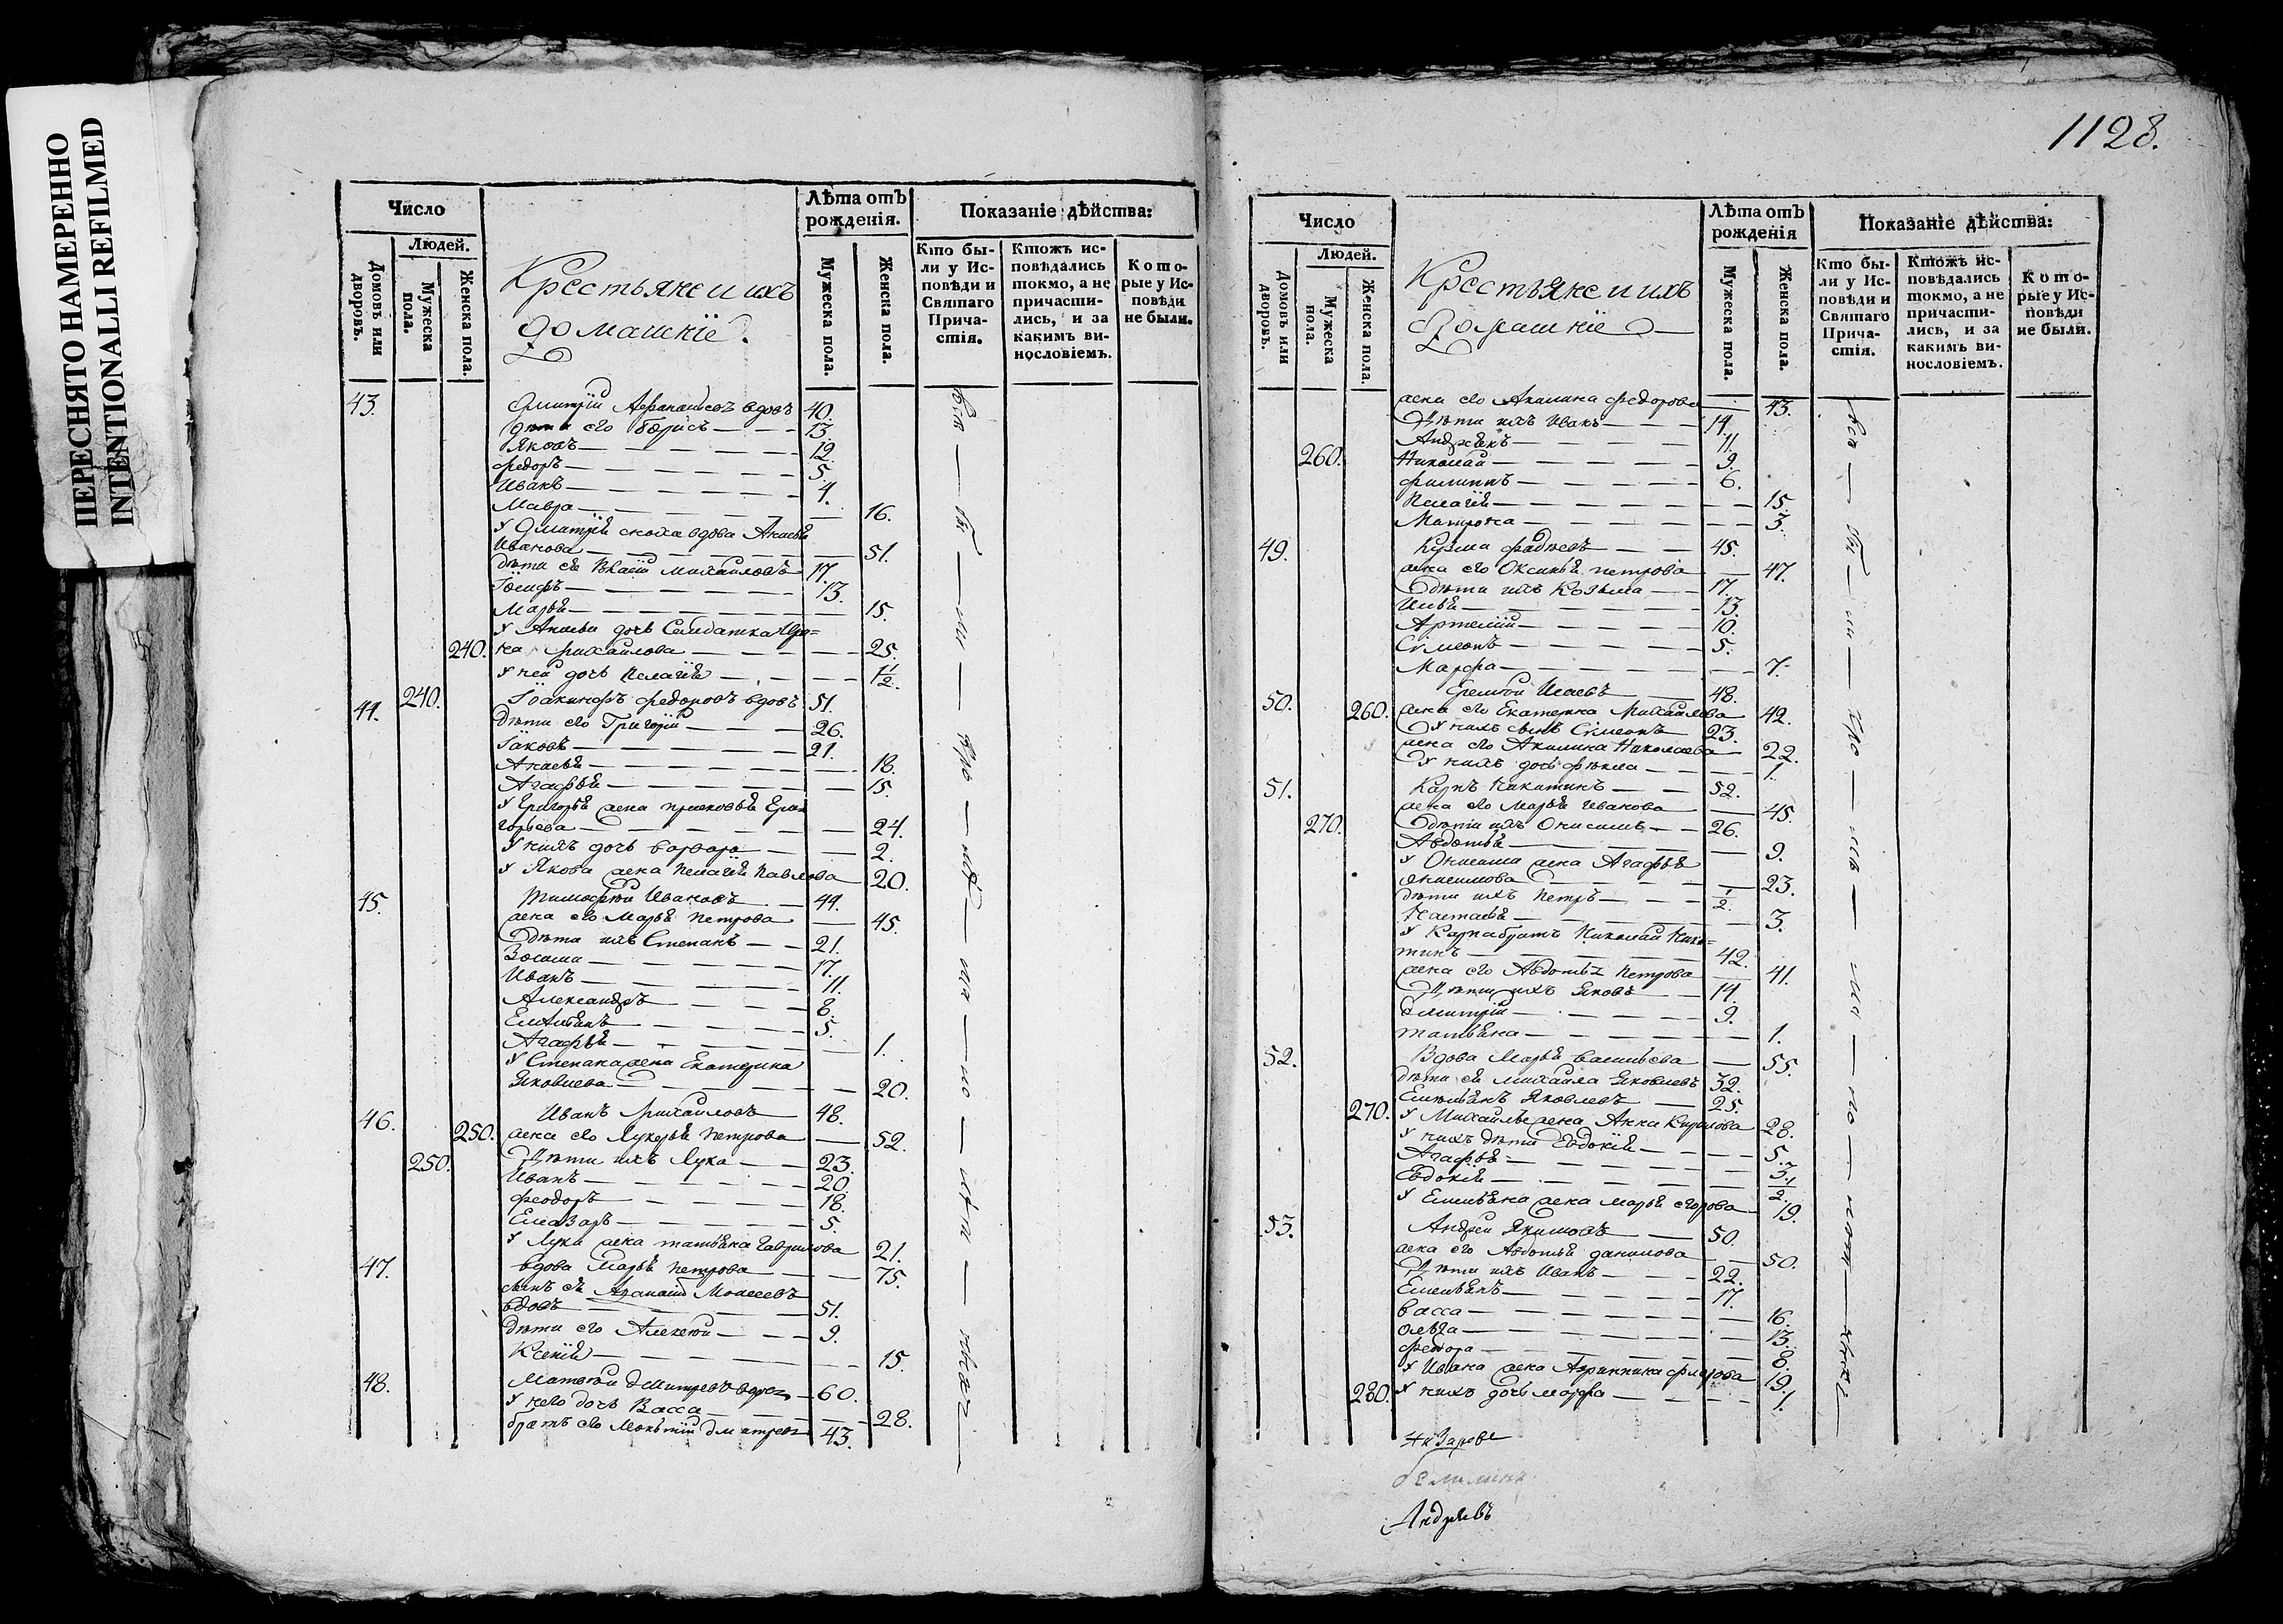 ПЕРЕСНЯТО НАМЕРЕННО
INTENTIONALLI REFILMED
Число
Лѣта отъ рожденія.
Показаніе дѣйства:
Домовъ или дворовъ.
Людей.
Мужеска пола.
Женска пола.
Крестьяне и ихъ
домашніе.
Мужеска пола.
Женска пола.
Кто были у Исповѣди и Святаго Причастія.
Ктожъ исповѣдались токмо, а не причастились, и за какимъ винословіемъ.
Которые у Исповѣди не были.
43. Дмитрій Афанасьевъ вдовъ 40.
Дѣти его Борисъ 13.
Яковъ 12.
Федоръ 5.
Иванъ 4.
Мавра 16.
У Дмитрія сноха вдова Анисья
Иванова 51.
Дѣти ея Михайловъ 17.
Іосифъ 13.
Марья 15.
У Анисьи дочь Солдатка Ири=
240. на Михайлова 25.
У ней дочь Пелагія 1/2.
44. 240. Іоакинфъ Федоровъ вдовъ 51.
Дѣти его Григорій 26.
Іаковъ 21.
Анисья 18.
Агафья 15.
У Григорья жена Прасковья Гри
горьева 24.
У нихъ дочь Варвара 2.
У Якова жена Пелагія Павлова 20.
45. Тимофей Ивановъ 44.
жена его Марья Петрова 45.
Дѣти ихъ Степанъ 21.
Зосима 17.
Иванъ 11.
Александръ 8.
Емельянъ 5.
Агафья 1.
У Степана жена Екатерина
Яковлева 20.
46. Иванъ Михайловъ 48.
250. жена его Лукерья Петрова 52.
250. Дѣти ихъ Лука 23.
Иванъ 20
Феодоръ 18.
Елазаръ 5.
У Луки жена Татьяна Гаврилова 21.
47. Вдова Марья Петрова 75.
сынъ ея Афанасій Моисеевъ
вдовъ 51.
Дѣти его Алексей 9.
Ксенія 15.
48. Матвей Дмитревъ вдовъ 60.
У него дочь Васса 28.
братъ его Дмитревъ 43.
1128.
Число
Лѣта отъ рожденія
Показаніе дѣйства:
Домовъ или дворовъ.
Людей.
Мужеска пола.
Женска пола.
Крестьяне и ихъ
Домашніе
Мужеска пола.
Женска пола.
Кто были у Исповѣди и Святаго Причастія.
Ктожъ исповѣдались токмо, а не причастились, и за какимъ винословіемъ.
Которые у Исповѣди не были.
жена его Акилина Федорова 43.
Дѣти ихъ Иванъ 14.
Андреянъ 11.
260. Николай 9.
Филиппъ 6.
Пелагія 15.
Матрона 3.
49. Кузма Фадѣевъ 45.
жена его Оксинья Петрова 47.
Дѣти ихъ Козьма 17.
Илья 13.
Артемій 10.
Сѵмеонъ 5.
Марфа 7.
50. Еремѣй Исаевъ 48.
260. жена его Екатерина Михайлова 42.
У нихъ сынъ Сѵмеонъ 23.
жена его Акилина Николаева 22.
У нихъ дочь Фекла 1.
51. Карпъ Никитинъ 52.
жена его Марья Иванова 45.
270. Дѣти ихъ Онисимъ 26.
Авдотья 9.
У Онисима жена Агафья
Онисимова 23.
Дѣти ихъ Петръ 1/2.
Настасья 3.
У Карпа братъ Николай Ники=
тинъ 42.
жена его Авдотья Петрова 41.
Дѣти ихъ Яковъ 14.
Дмитрій 9.
Татьяна 1.
52. Вдова Марья Васильева 55.
Дѣти ея Михайла Яковлевъ 32.
Емельянъ Яковлевъ 25.
270. У Михайлы жена Анна Кирилова 28.
У нихъ дѣти Евдокія 5.
Агафья 3.
Евдокія 1/2.
У Емельяна жена Марья Егорова 19.
53. Андрей Якимовъ 50.
жена его Авдотья Данилова 50.
Дѣти ихъ Иванъ 22.
Емельянъ 17.
Васса 16.
Ольга 13.
Феодора 8.
У Ивана жена Агрипина Фирсова 19.
280. У нихъ дочь Марфа 1.
Андрѣевъ